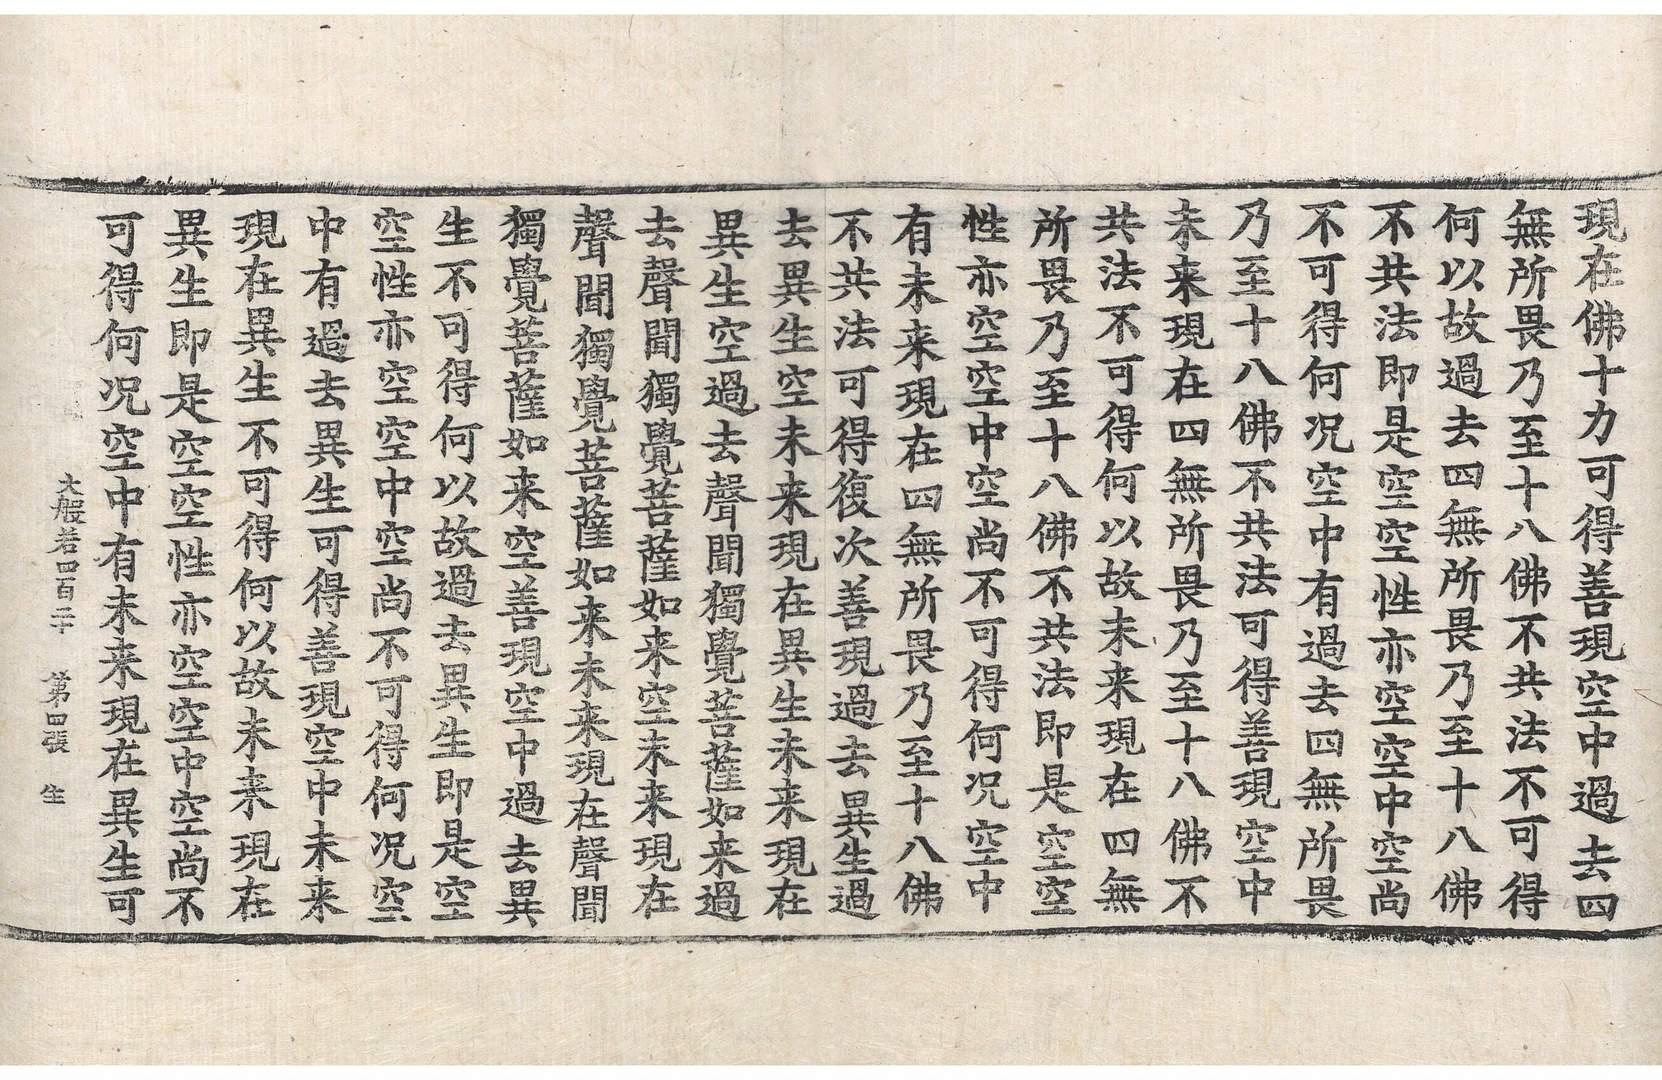 現在佛十力可得善現空中過去四
無所畏乃至十八佛不共法不可得
何以故過去四無所畏乃至十八佛
不共法即是空空性亦空空中空尚
不可得何况空中有過去四無所畏
乃至十八佛不共法可得善現空中
未来現在四無所畏乃至十八佛不
共法不可得何以故未来現在四無
所畏乃至十八佛不共法即是空空
性亦空空中空尚不可得何况空中
有未来現在四無所畏乃至十八佛
不共法可得復次善現過去異生過
去異生空未来現在異生未来現在
異生空過去聲聞獨覺菩薩如来過
去聲聞獨覺菩薩如来空未来現在
聲聞獨覺菩薩如来未来現在聲聞
獨覺菩薩如来空善現空中過去異
生不可得何以故過去異生即是空
空性亦空空中空尚不可得何况空
中有過去異生可得善現空中未来
現在異生不可得何以故未来現在
異生即是空空性亦空空中空尚不
可得何况空中有未来現在異生可
大般若四百二十 第四張 生